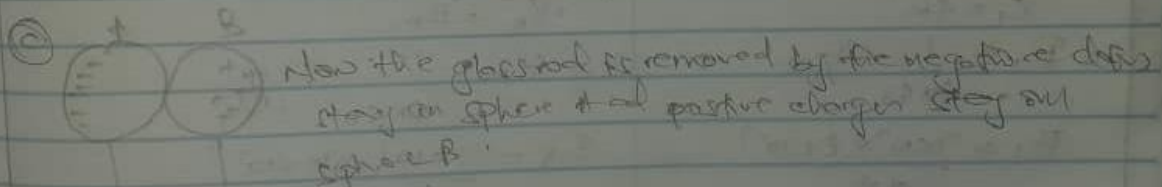 C A B
Now the glass rod is removed by the negative
stay on sphere A and positive charges stay on
sphere B.